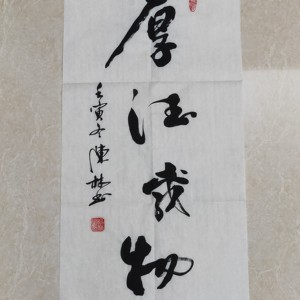 厚德载物
壬寅冬陳林书